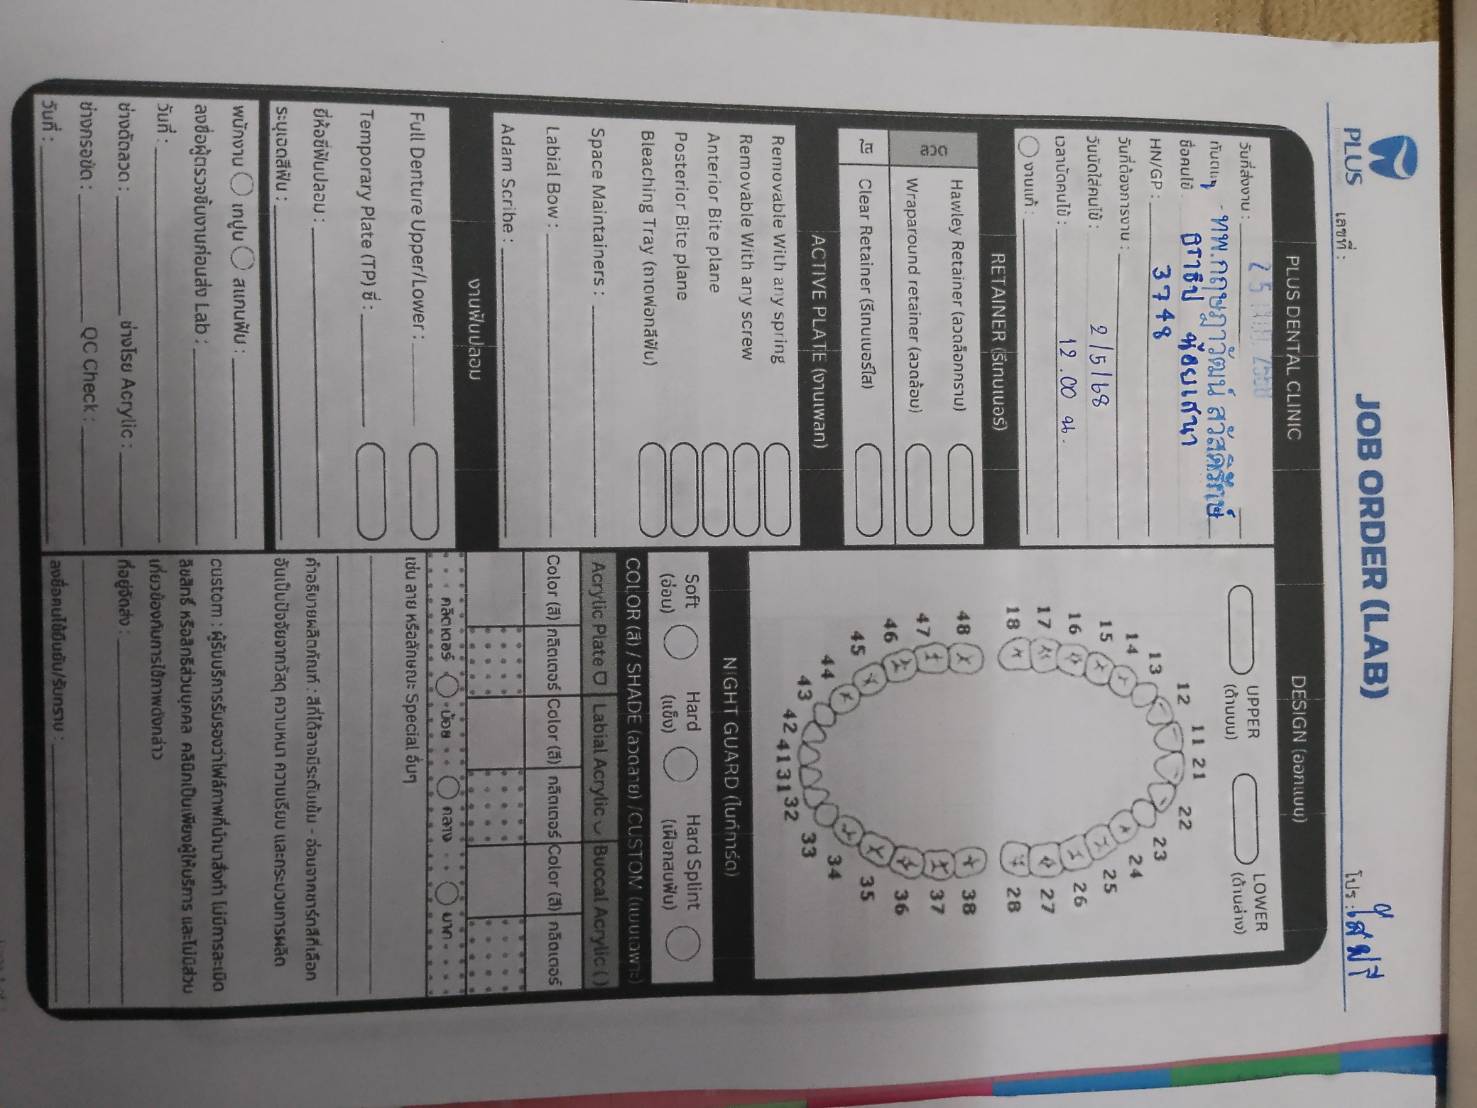 PLUS
JOB ORDER (LAB)
เลขที่ :
โปร :
PLUS DENTAL CLINIC
วันที่ส่งงาน : 25 2568
ทันตแพทย์ - ทพ.กฤษฎาวัฒน์ สวัสดิรักษ์
ชื่อคนไข้ ธราธิป
HN/GP : 3748
วันที่ต้องการงาน :
วันนัดใส่คนไข้ : 2/5/68
เวลานัดคนไข้ : 12.00 น.
งานแก้ :
RETAINER (รีเทนเนอร์)
ลวด
Hawley Retainer (ลวดล็อกกราม)
Wraparound retainer (ลวดล้อม)
ใส
Clear Retainer (รีเทนเนอร์ใส)
ACTIVE PLATE (งานเพลท)
Removable With any spring
Removable With any screw
Anterior Bite plane
Posterior Bite plane
Bleaching Tray (ถาดฟอกสีฟัน)
Space Maintainers :
Labial Bow :
Adam Scribe :
งานฟันปลอม
Full Denture Upper/Lower :
Temporary Plate (TP) ซี่ :
ยี่ห้อซี่ฟันปลอม :
ระบุเฉดสีฟัน :
พนักงาน เทปูน สแกนฟัน :
ลงชื่อผู้ตรวจชิ้นงานก่อนส่ง Lab :
วันที่ :
ช่างดัดลวด : ช่างโรย Acrylic :
ช่างกรอขัด : QC Check :
วันที่ :
DESIGN (ออกแบบ)
UPPER
(ด้านบน)
LOWER
(ด้านล่าง)
11 21
12 22
13 23
14 24
15 25
16 26
17 27
18 28
48 38
47 37
46 36
45 35
44 34
43 33
42 41 31 32
NIGHT GUARD (ไนท์การ์ด)
Soft
(อ่อน)
Hard
(แข็ง)
Hard Splint
(เฝือกสบฟัน)
COLOR (สี) / SHADE (ลวดลาย) / CUSTOM (แบบเฉพาะ)
Acrylic Plate Labial Acrylic Buccal Acrylic ( )
Color (สี) กลิตเตอร์ Color (สี) กลิตเตอร์ Color (สี) กลิตเตอร์
กลิตเตอร์ น้อย กลาง มาก
เช่น ลาย หรือลักษณะ Special อื่นๆ
คำอธิบายผลิตภัณฑ์ : สีที่ได้อาจมีระดับเข้ม - อ่อนจากชาร์ทสีที่เลือก
อันเป็นปัจจัยจากวัสดุ ความหนา ความเรียบ และกระบวนการผลิต
custom : ผู้รับบริการรับรองว่าไฟล์ภาพที่นำมาสั่งทำ ไม่มีการละเมิด
ลิขสิทธิ์ หรือสิทธิส่วนบุคคล คลินิกเป็นเพียงผู้ให้บริการ และไม่มีส่วน
เกี่ยวข้องกับการใช้ภาพดังกล่าว
ที่อยู่จัดส่ง :
ลงชื่อคนไข้ยืนยัน/รับทราบ :